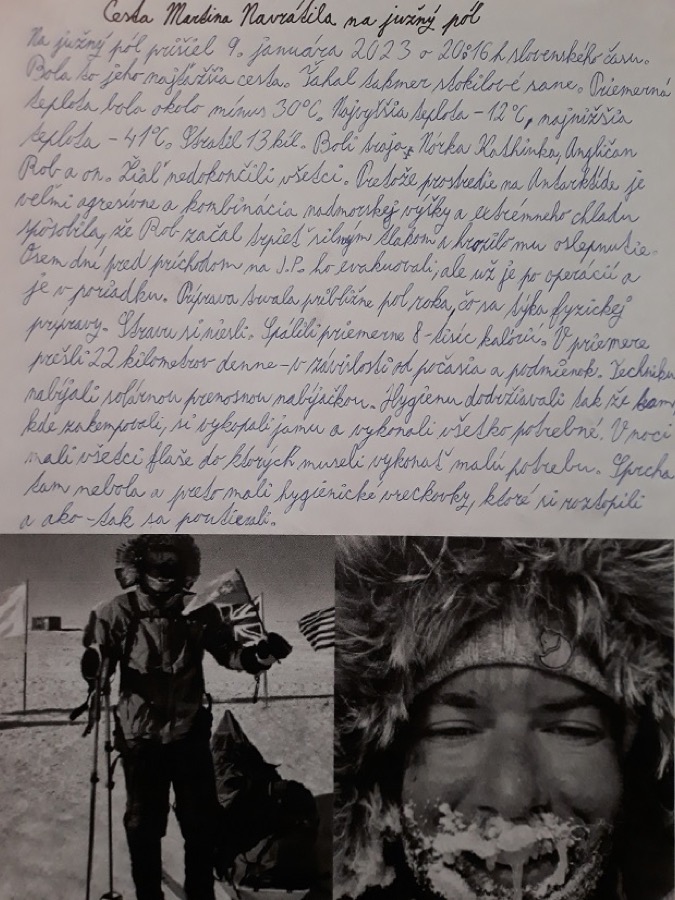 Cesta Martina Navrátila na južný pól
Na južný pól prišiel 9. januára 2023 o 20:16 h slovenského času.
Bola to jeho najťažšia cesta. Ťahal takmer stokilové sane. Priemerná
teplota bola okolo mínus 30°C. Najvyššia teplota -12°C, najnižšia
teplota -41°C. Stratil 13 kíl. Boli traja: Nórka Kathinka, Angličan
Rob a on. Žiaľ nedokončili všetci. Pretože prostredie na Antarktíde je
veľmi agresívne a kombinácia nadmorskej výšky a extrémneho chladu
spôsobila, že Rob začal trpieť silným tlakom a hrozilo mu oslepnutie.
Osem dní pred príchodom na J.P. ho evakuovali, ale už je po operácií a
je v poriadku. Príprava trvala približne pol roka, čo sa týka fyzickej
prípravy. Stravu si niesli. Spálili priemerne 8-tisíc kalórií. V priemere
prešli 22 kilometrov denne - v závislosti od počasia a podmienok. Techniku
nabíjali solárnou prenosnou nabíjačkou. Hygienu dodržiavali tak že tam,
kde zakempovali, si vykopali jamu a vykonali všetko potrebné. V noci
mali všetci fľaše do ktorých museli vykonať malú potrebu. Sprcha
tam nebola a preto mali hygienické vreckovky, ktoré si roztopili
a ako-tak sa poutierali.